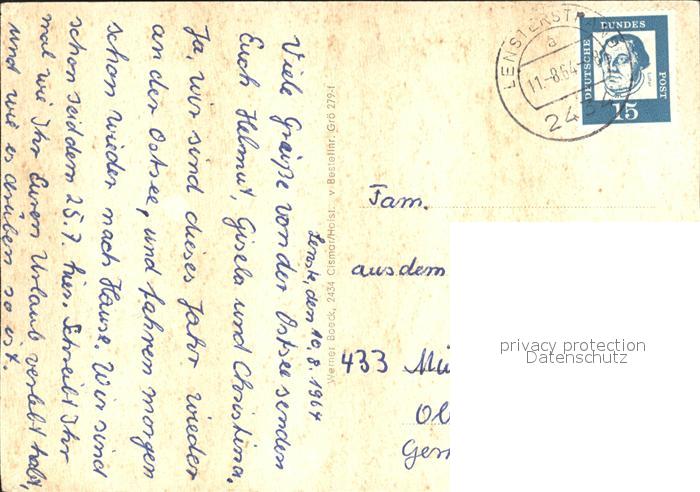 Lenste, den 10.8.1964
Viele Grüße von der Ostsee senden
Euch Helmut, Gisela und Christina.
Ja, wir sind dieses Jahr wieder
an der Ostsee, und fahren morgen
schon wieder nach Hause. Wir sind
schon seit dem 25.7. hier. Schreibt Ihr
mal wie Ihr Euren Urlaub verlebt habt,
und wie es drüben so ist.
Werner Boeck, 2434 Cismar/Holst. v Bestellnr. Grö 279-f
LENSTERSTRAND
a
11.-8.64
2431
DEUTSCHE
BUNDES
POST
15
Fam.
aus dem
433 Mü
Ol
Gern
privacy protection
Datenschutz